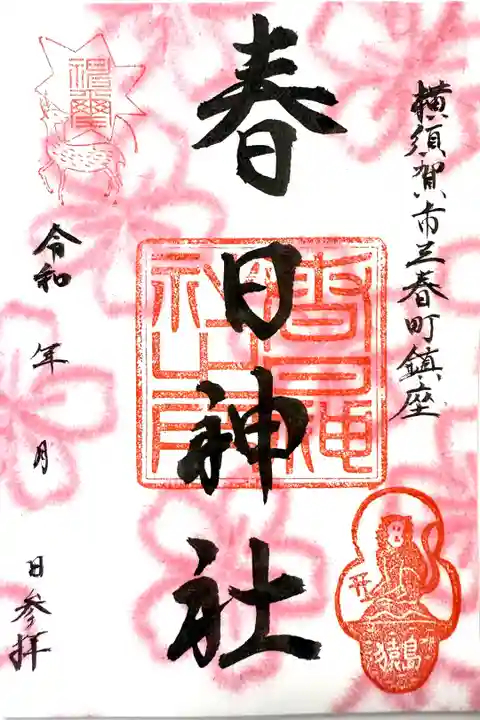 横須賀市三春町鎮座
春日神社
春日神
社之印
神璽
猿島
令和 年 月
日参拝